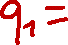 q₁ =